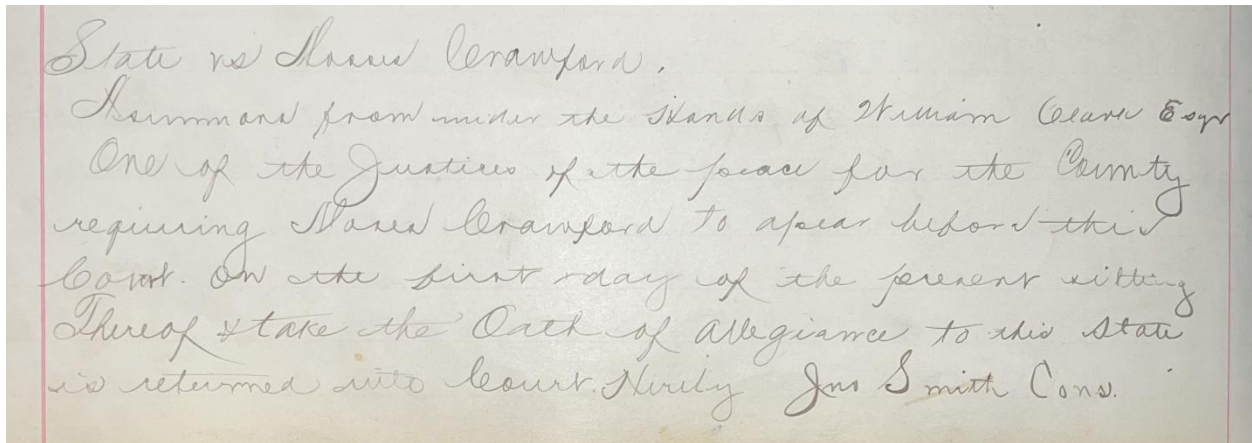 State vs Moses Crawford.
A summons from under the Hands of William Clark Esqr
One of the Justices of the peace for the County
requiring Moses Crawford to apear before this
Court. On the first day of the present sitting
Thereof & take the Oath of Allegiance to this State
is returned into Court. Jno Smith Cons.